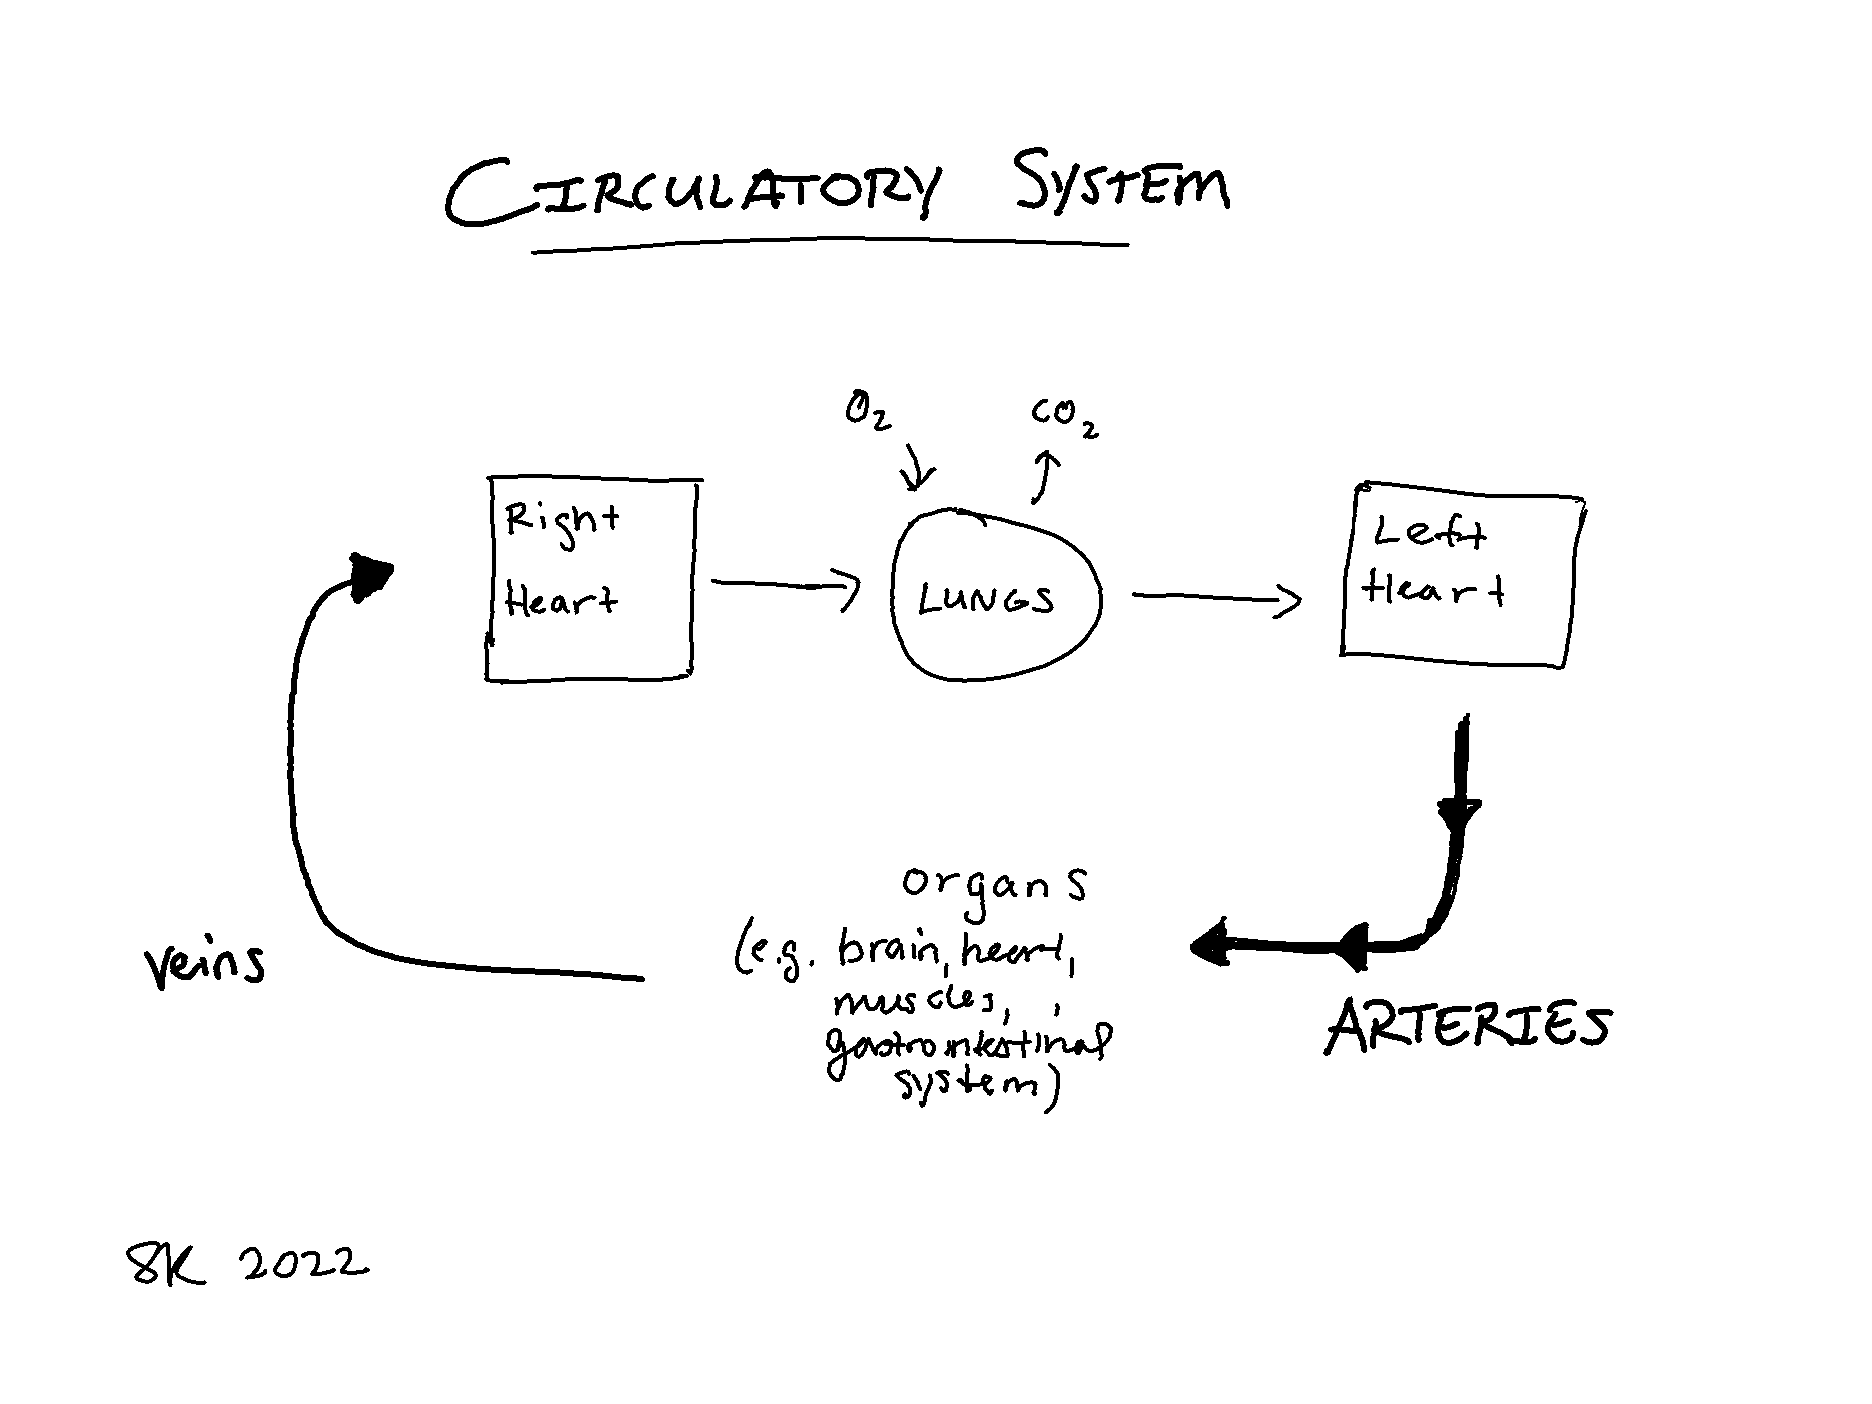 CIRCULATORY SYSTEM
O₂
CO₂
Right
Heart
LUNGS
Left
Heart
organs
(e.g. brain, heart,
muscles, ,
gastrointestinal
system)
veins
ARTERIES
SK 2022